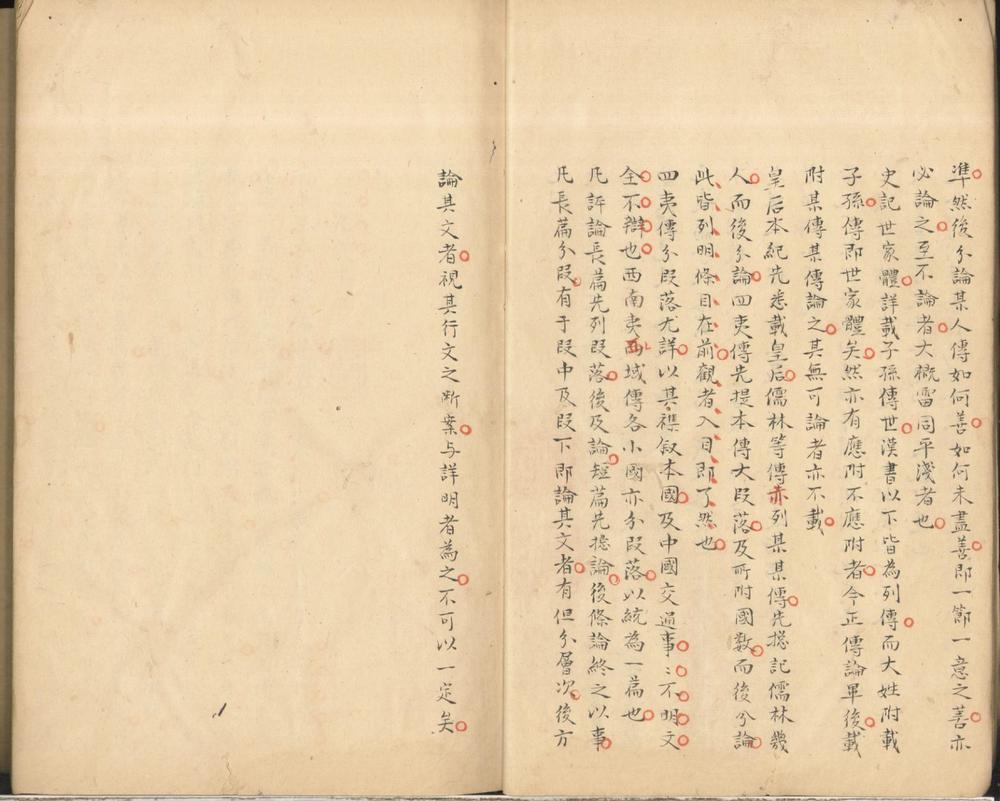 準然後分論某人傳如何善如何未盡善即一節一意之善亦
必論之至不論者大概雷同平淺者也
史記世家體詳載子孫傳世漢書以下皆為列傳而大姓附載
子孫傳即世家體矣然亦有應附不應附者今正傳論畢後載
附某傳某傳論之其無可論者亦不載
皇后本紀先悉載皇后儒林等傳亦列某某傳先揔記儒林幾
人而後分論四夷傳先提本傳大段落及所附國數而後分論
此皆列明條目在前觀者入目即了然也
四夷傳分段落尤詳以其襍叙本國及中國交通事〻不明文
全不辯也西南夷西域傳各小國亦分段落以統為一篇也
凡評論長篇先列段落後及論短篇先揔論後條論終之以事
凡長篇分段有于段中及段下即論其文者有但分層次後方
論其文者視其行文之斷案与詳明者為之不可以一定矣